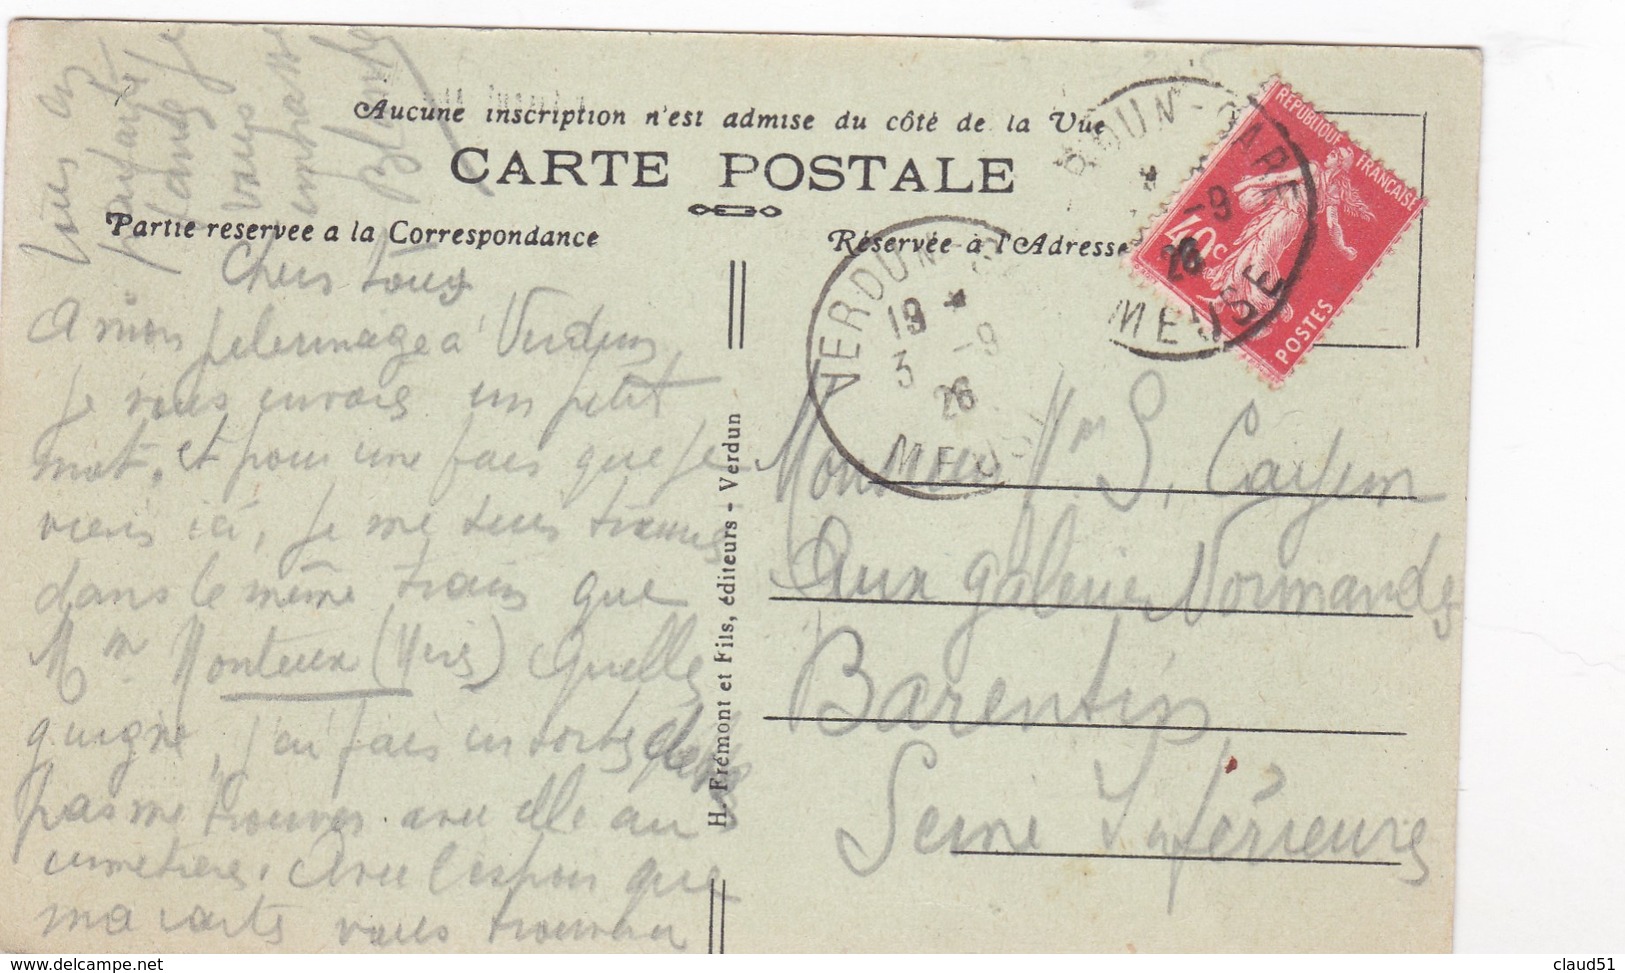 Aucune inscription n'est admise du côté de la Vue
CARTE POSTALE
Partie reservee a la Correspondance
Réservée à l'Adresse
Chers tous
A mon pelerinage a Verdun
je vous envois un petit
mot, et pour une fois que je
viens ici, je me suis trouvée
dans le même train que
Mm Monteux Quelle
guigne, j'ai fais en sorte de
pas me trouver avec elle au
cimetière. Avec l'espoir que
ma carte vous trouvera
tous en
parfaite
santé je
vous
embrasse
Blanche
H. Frémont et Fils, éditeurs - Verdun
VERDUN
19 *
3 -9
26
MEUSE
RÉPUBLIQUE FRANÇAISE
40c
POSTES
DUN-GARE
*
-9
26
MEUSE
Monsieur Mm S. Cayem
Aux galerie Normandes
Barentin
Seine Inférieure
claud51